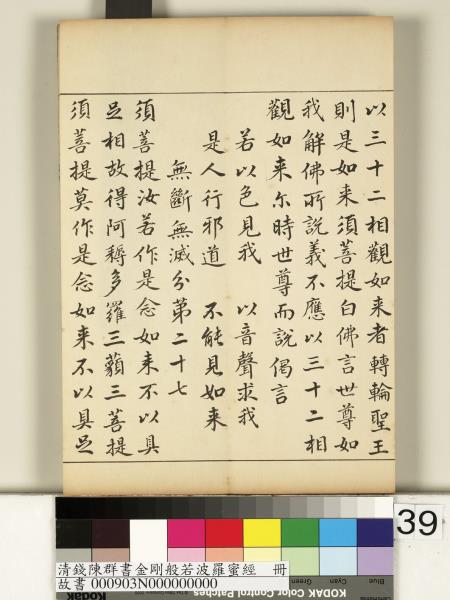 以三十二相觀如来者轉輪聖王
則是如来須菩提白佛言世尊如
我解佛所說義不應以三十二相
觀如来尒時世尊而說偈言
若以色見我 以音聲求我
是人行邪道 不能見如来
無斷無滅分第二十七
須菩提汝若作是念如来不以具
足相故得阿耨多羅三藐三菩提
須菩提莫作是念如来不以具足
39
Blue
Cyan
Green
KODAK Color Control Patches
Kodak
清錢陳群書金剛般若波羅蜜經 冊
故書 000903N000000000